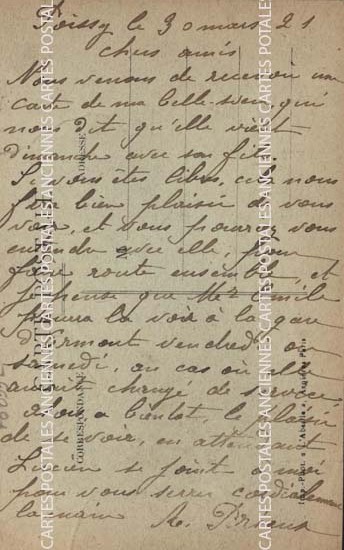 Poissy le 30 mars 21
chers amis
Nous venons de recevoir une
carte de ma belle-sœur, qui
nous dit qu'elle vient
dimanche avec son fils.
Si vous êtes libre, cela nous
fera bien plaisir de vous
voir, et vous pourrez vous
entendre avec elle, pour
faire route ensemble, et
je pense que Mr Emile
pourra la voir à la gare
d'Ermont vendredi ou
samedi, au cas où elle
aurait changé de service.
Alors, a bientot, le plaisir
de se voir, en attendant
Lucien se joint a moi
pour vous serrer cordialement
la main
CARTE POSTALE
CORRESPONDANCE
ADRESSE
CARTES POSTALES ANCIENNES
CARTES POSTALES ANCIENNES
CARTES POSTALES ANCIENNES